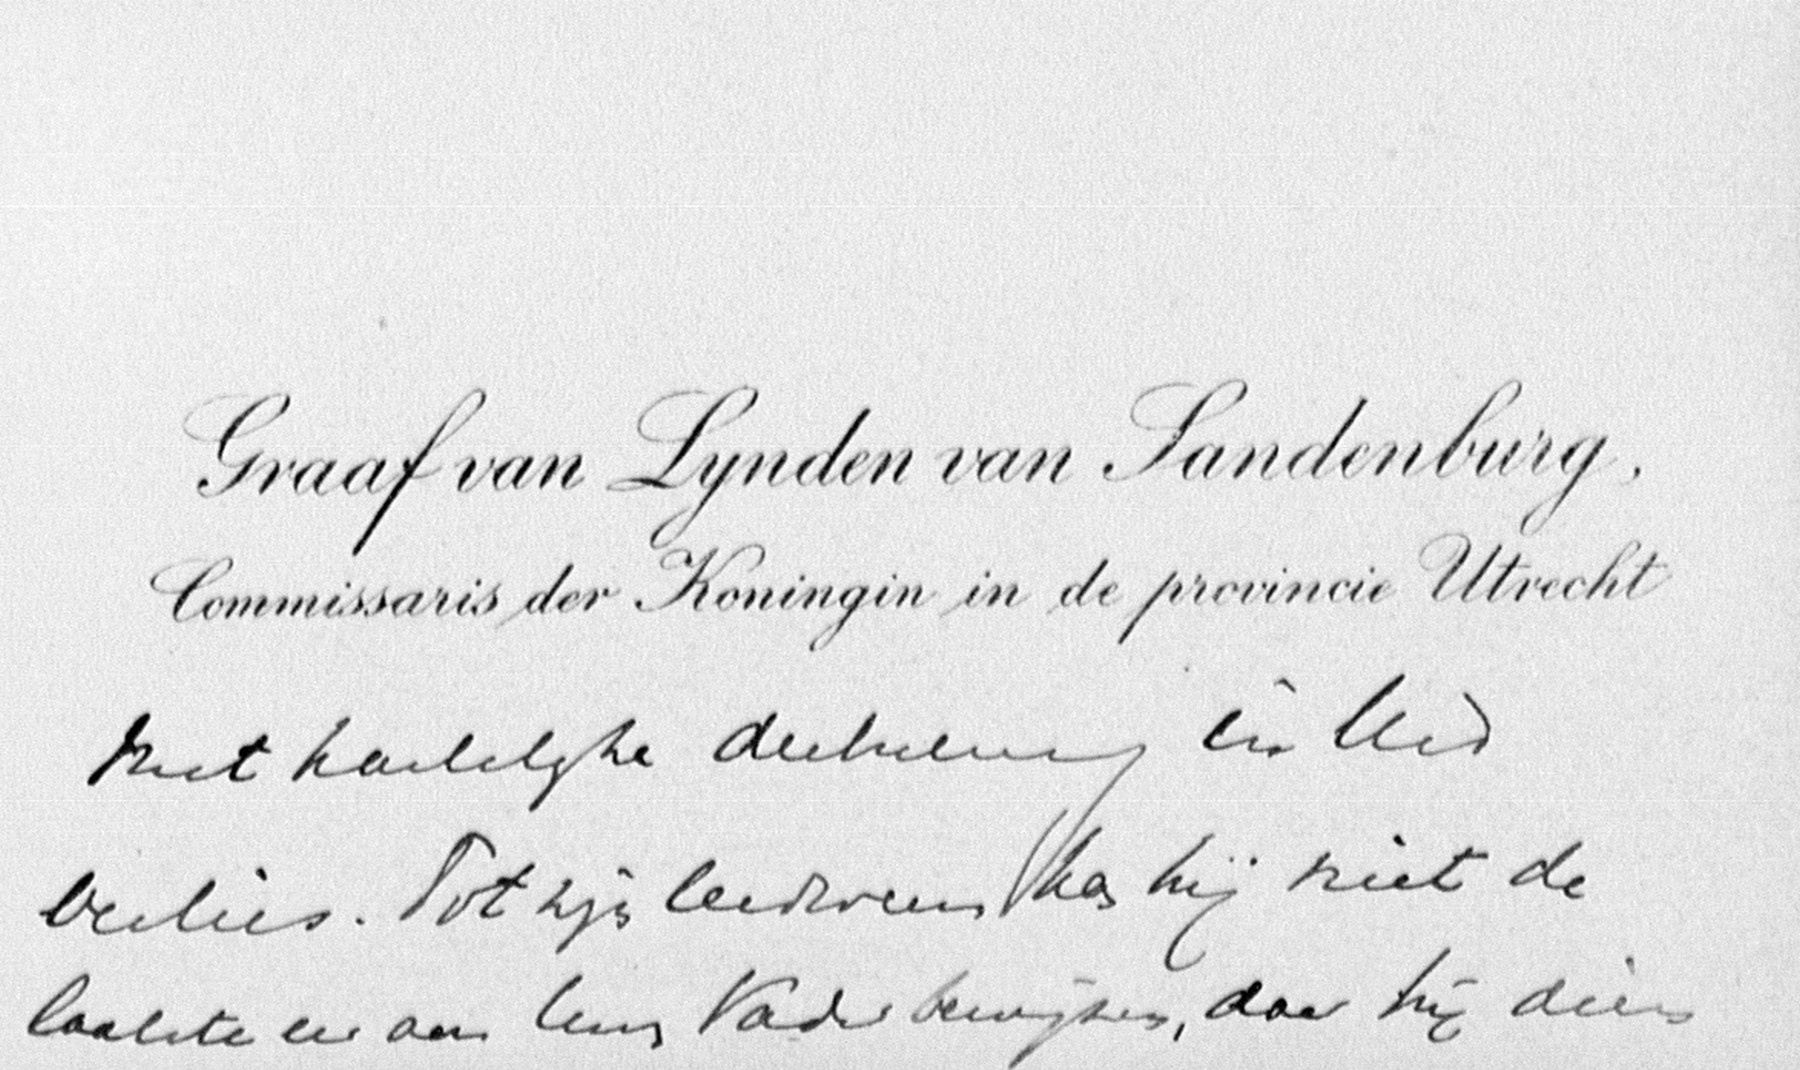 Graaf van Lynden van Sandenburg,
Commissaris der Koningin in de provincie Utrecht
met hartelijke deelneming in Uw
verlies. Tot zijn leedwezen kan hij niet de
laatste eer aan Uw Vader bewijzen, daar hij dien